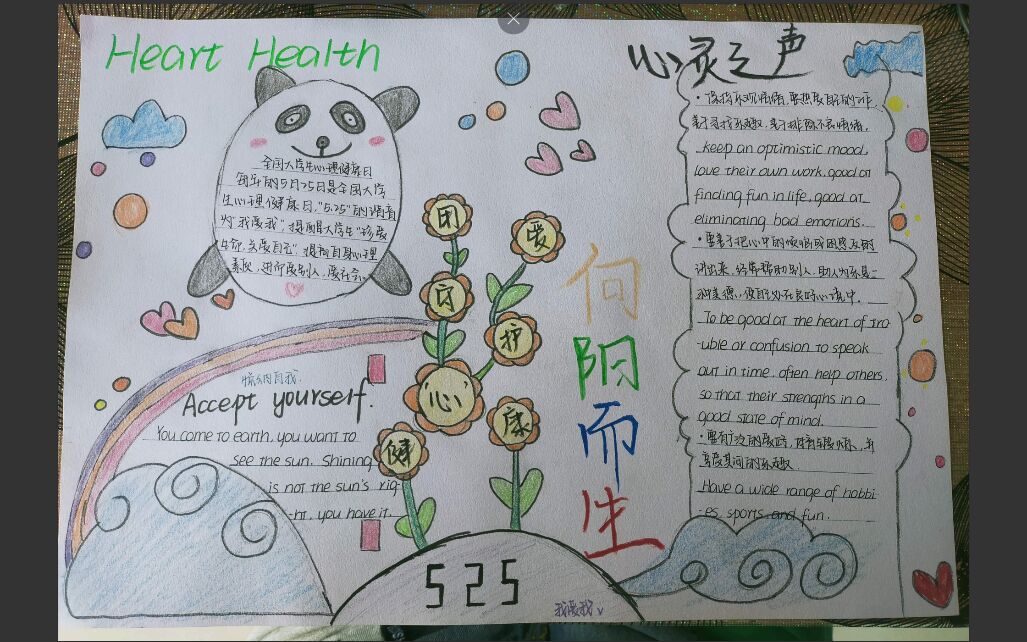 Heart Health
心灵之声
全国大学生心理健康日
每年的5月25日是全国大学
生心理健康日,"5.25"的谐音
为"我爱我",提醒大学生"珍爱
生命,关爱自己",提
自身心理
素质,进而爱别人,爱社会。
·保持乐观情绪,要热爱自己的工作,
善于寻找乐趣,善于排除不良情绪,
keep an optimistic mood,
love their own work, good at
finding fun in life, good at
eliminating bad emotions.
·要善于把心中的烦恼或困惑及时
讲出来,
帮助别人,助人为乐是一
种美德,使自己处在良好心境中。
To be good at the heart of tro
-uble or confusion to speak
out in time, often help others,
so that their strengths in a
good state of mind.
·要有广泛的爱好,
并
享受其间的乐趣
Have a wide range of hobbi
-es, sports and fun.
团
爱
守
护
心
康
健
向
阳
而
生
接纳自我.
Accept yourself.
You come to earth, you want to
see the sun. Shining
is not the sun's rig-
-ht, you have it.
525
我爱我